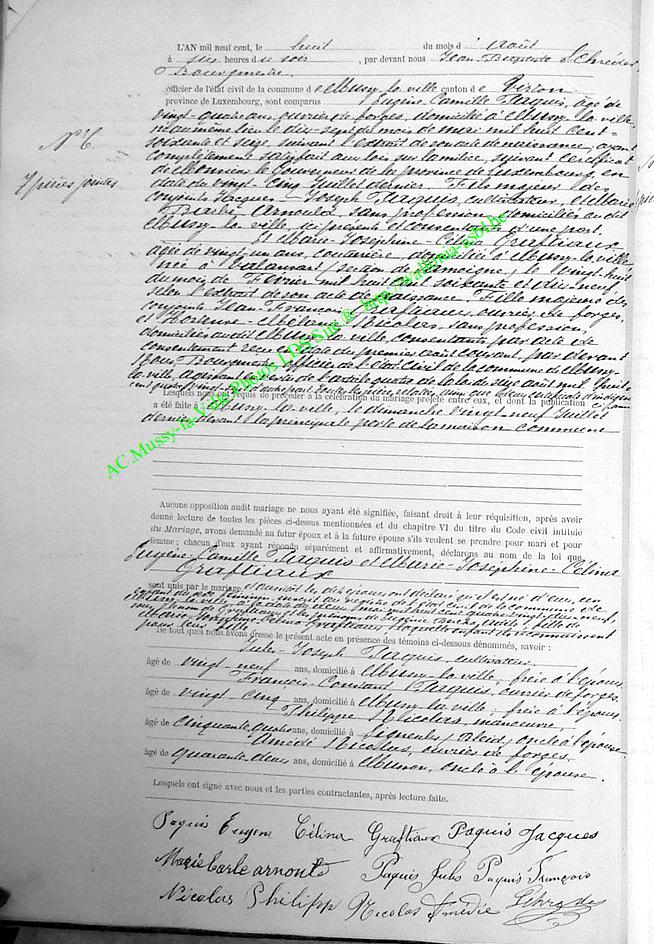 L'AN mil neuf cent, le huit du mois d'Août
à six heures du soir, par devant nous Jean Baptiste Schréder,
Bourgmestre,
officier de l'état civil de la commune de Mussy-la-ville canton de Virton
province de Luxembourg, sont comparus Eugène Camille Paquis, âgé de
vingt-quatre ans, ouvrier de forges, domicilié à Mussy-la-ville,
né au même lieu le dix-sept du mois de mai mil huit cent-
N° 6.
soixante et seize, suivant l'extrait de son acte de naissance, ayant
complètement satisfait aux lois sur la milice, suivant certificat
7 pièces jointes
de Monsieur le Gouverneur de la province de Luxembourg, en
date du vingt-cinq Juillet dernier. Fils majeur des
conjoints Jacques-Joseph Paquis, cultivateur, et Marie
Barbe Arnould, sans profession, domiciliés audit
Mussy-la-ville, ici présents et consentants d'une part.
Et Marie-Joséphine-Célina Graftiaux
âgée de vingt un ans, couturière, domiciliée à Mussy-la-ville
née à Valansart, section de Jamoigne, le vingt-huit
du mois de Février mil huit cent soixante et dix-neuf,
selon l'extrait de son acte de naissance. Fille majeure des
conjoints Jean-François Graftiaux, ouvrier de forges,
et Hortense-Mélanie Nicolas, sans profession,
domiciliés audit Mussy-la-ville, consentants par acte de
consentement en date du premier août courant, par devant
Nous Bourgmestre officier de l'état civil de la commune de Mussy-
la-ville, agissant en vertu de l'article quatre de la loi du seize août mil huit
cent quatre-vingt-sept
Lesquels nous ont requis de procéder à la célébration du mariage projeté entre eux, et dont la publication
a été faite à Mussy-la-ville, le dimanche vingt-neuf Juillet
dernier devant la principale porte de la maison commune
Aucune opposition audit mariage ne nous ayant été signifiée, faisant droit à leur réquisition, après avoir
donné lecture de toutes les pièces ci-dessus mentionnées et du chapitre VI du titre du Code civil intitulé
du Mariage, avons demandé au futur époux et à la future épouse s'ils veulent se prendre pour mari et pour
femme; chacun d'eux ayant répondu séparément et affirmativement, déclarons au nom de la loi que
Eugène-Camille Paquis et Marie-Joséphine-Célina
Graftiaux
sont unis par le mariage et aussitôt les dits époux ont déclaré qu'il est né d'eux, un
enfant du sexe
pour leur fille
De tout quoi nous avons dressé le présent acte en présence des témoins ci-dessous dénommés, savoir:
Jules-Joseph Paquis, cultivateur,
âgé de vingt-neuf ans, domicilié à Mussy-la-ville, frère à l'époux,
François-Constant Paquis, ouvrier de forges,
âgé de vingt cinq ans, domicilié à Mussy-la-ville, frère à l'époux,
Philippe Nicolas, manœuvre,
âgé de cinquante quatre ans, domicilié à Signeulx, oncle à l'épouse
Amédé Nicolas, ouvrier de forges,
âgé de quarante-deux ans, domicilié à Musson, oncle à l'épouse.
Lesquels ont signé avec nous et les parties contractantes, après lecture faite.
Paquis Eugene Célina Graftiaux Paquis Jacques
Marie barbe arnould Paquis Jules Paquis François
Nicolas Philipp Nicolas Amédie Schréder
AC.Mussy-la-Ville Photos LDS Site @ http://wallonia-asbl.be